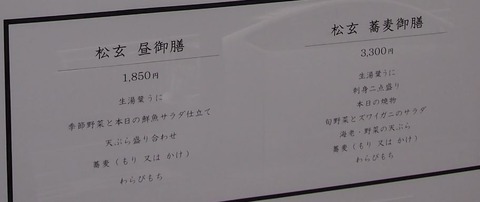 松玄 昼御膳
1,850円
生湯葉うに
季節野菜と本日の鮮魚サラダ仕立て
天ぷら盛り合わせ
蕎麦（もり 又は かけ）
わらびもち
松玄 蕎麦御膳
3,300円
生湯葉うに
刺身二点盛り
本日の焼物
旬野菜とズワイガニのサラダ
海老・野菜の天ぷら
蕎麦（もり 又は かけ）
わらびもち